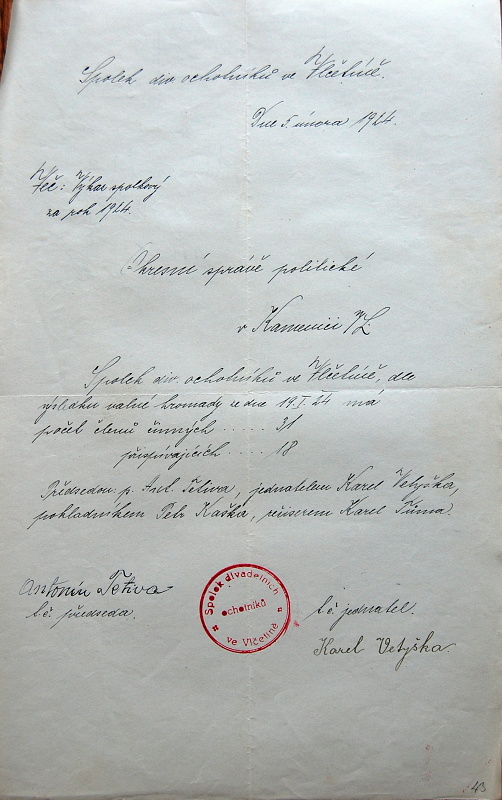 Spolek div. ochotníků ve Vlčetíně.
Dne 5. února 1924.
Věc: Výkaz spolkový
za rok 1924.
Okresní správě politické
v Kamenici n/L.
Spolek div. ochotníků ve Vlčetíně, dle
výsledku valné hromady ze dne 19.I.24 má
počet členů činných ..... 31
přispívajících .... 18
Předsedou: p. Ant. Tetiva, jednatelem Karel Vetyška,
pokladníkem Petr Kaška, režiserem Karel Tůma.
Antonín Tetiva
t.č. předseda.
Spolek divadelních
ochotníků
ve Vlčetíně
t.č. jednatel.
Karel Vetyška.
43